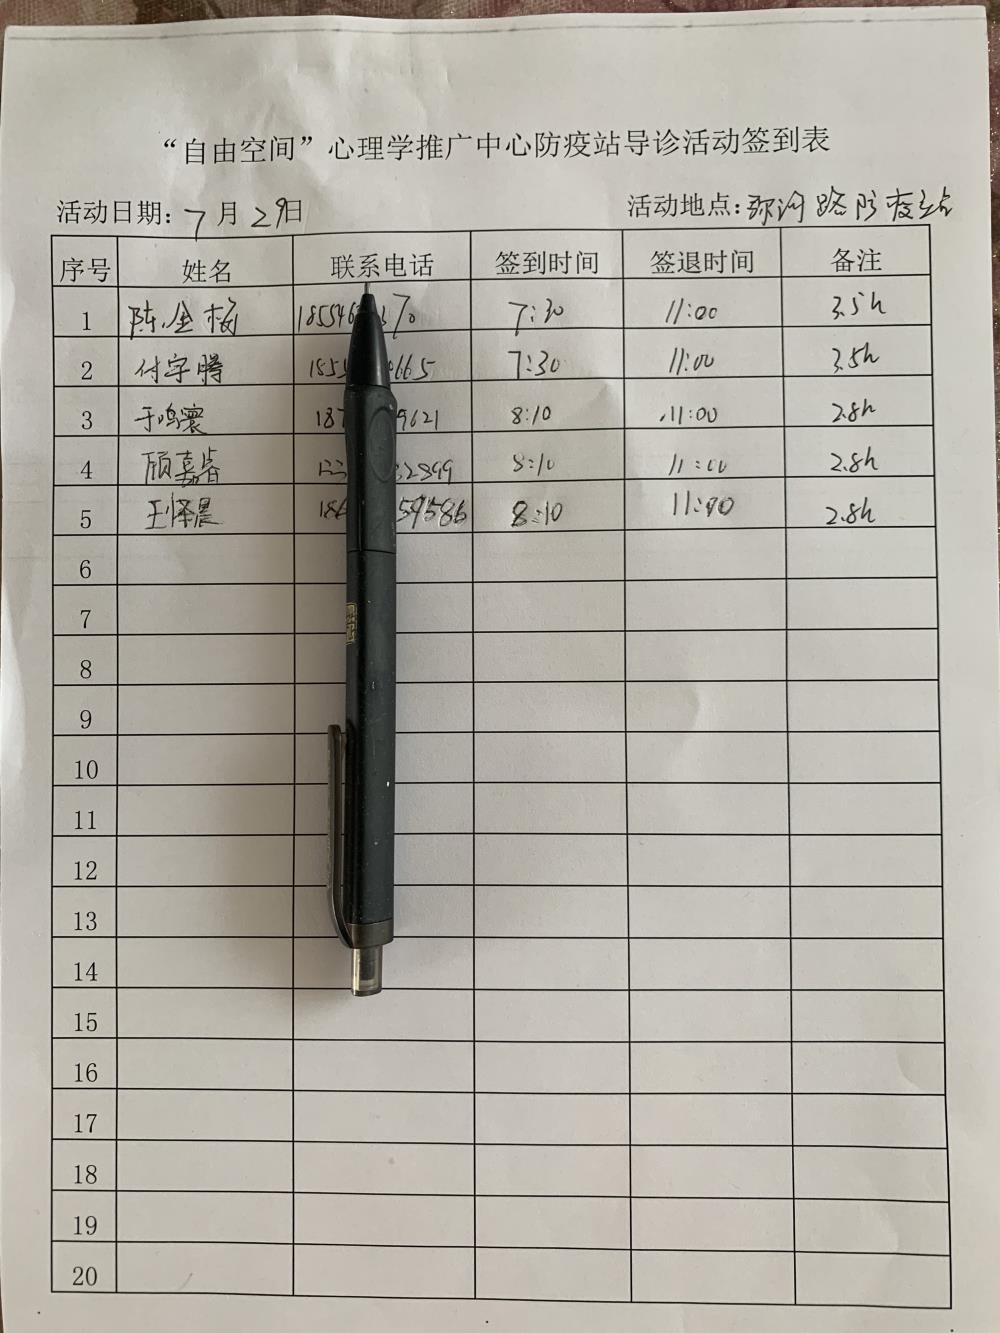 “自由空间”心理学推广中心防疫站导诊活动签到表
活动日期: 7月29日 活动地点: 路防疫站
序号 姓名 联系电话 签到时间 签退时间 备注
1 陈金梅 7:30 11:00 3.5h
2 付宇腾 7:30 11:00 3.5h
3 于鸣寰 8:10 11:00 2.8h
4 顾嘉睿 8:10 11:00 2.8h
5 王怿晨 8:10 11:00 2.8h
6
7
8
9
10
11
12
13
14
15
16
17
18
19
20